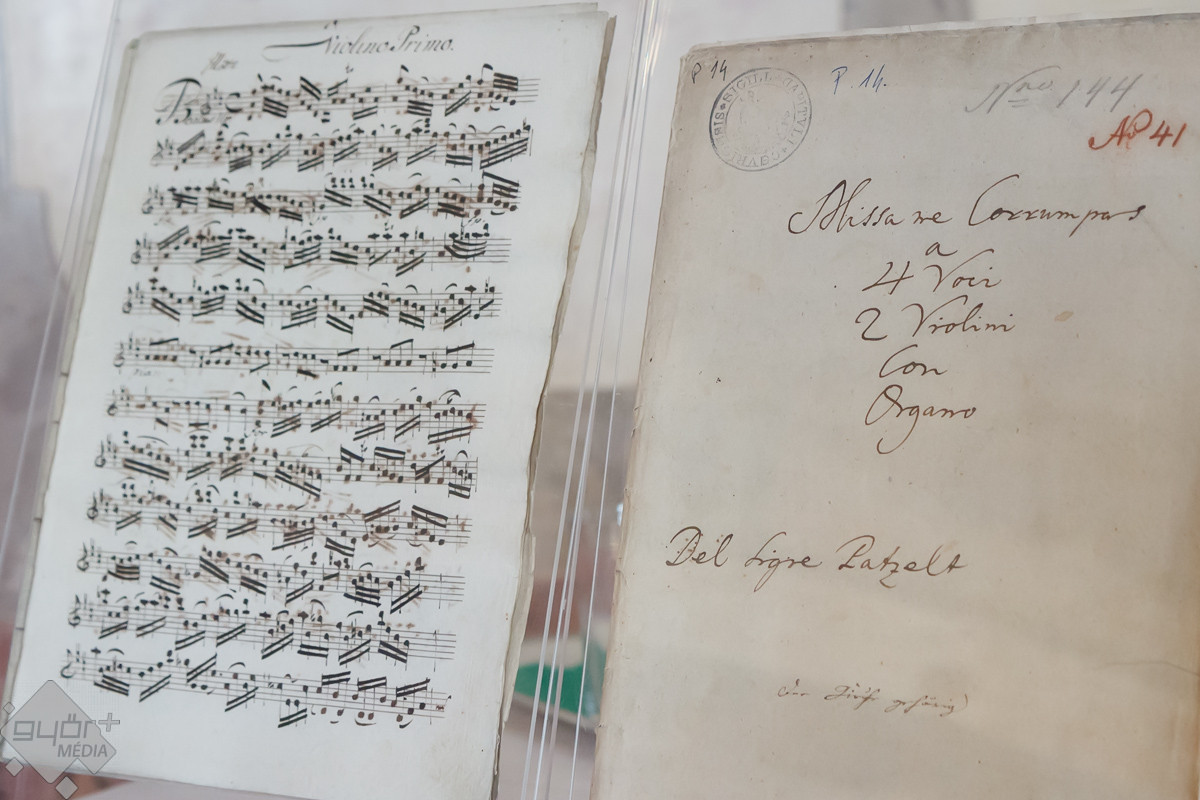 Violino Primo.
P 14
P. 14.
SIGILL. CAPITULI
Nro 144
No 41
Missa ne Corrumpas
a
4 Voci
2 Violini
Con
Organo
Del Sigre Patzelt
gehörig
győr+
MÉDIA